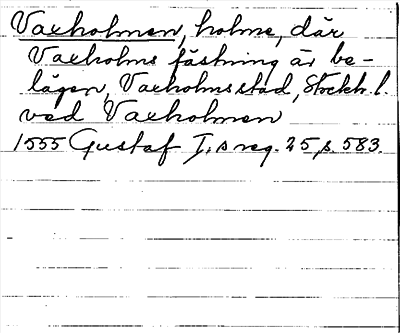 Vaxholmen, holme, där
Vaxholms fästning är be-
lägen, Vaxholms stad, Stockh. l.
ved Vaxholmen
1555 Gustaf I,s reg. 25, s. 583.